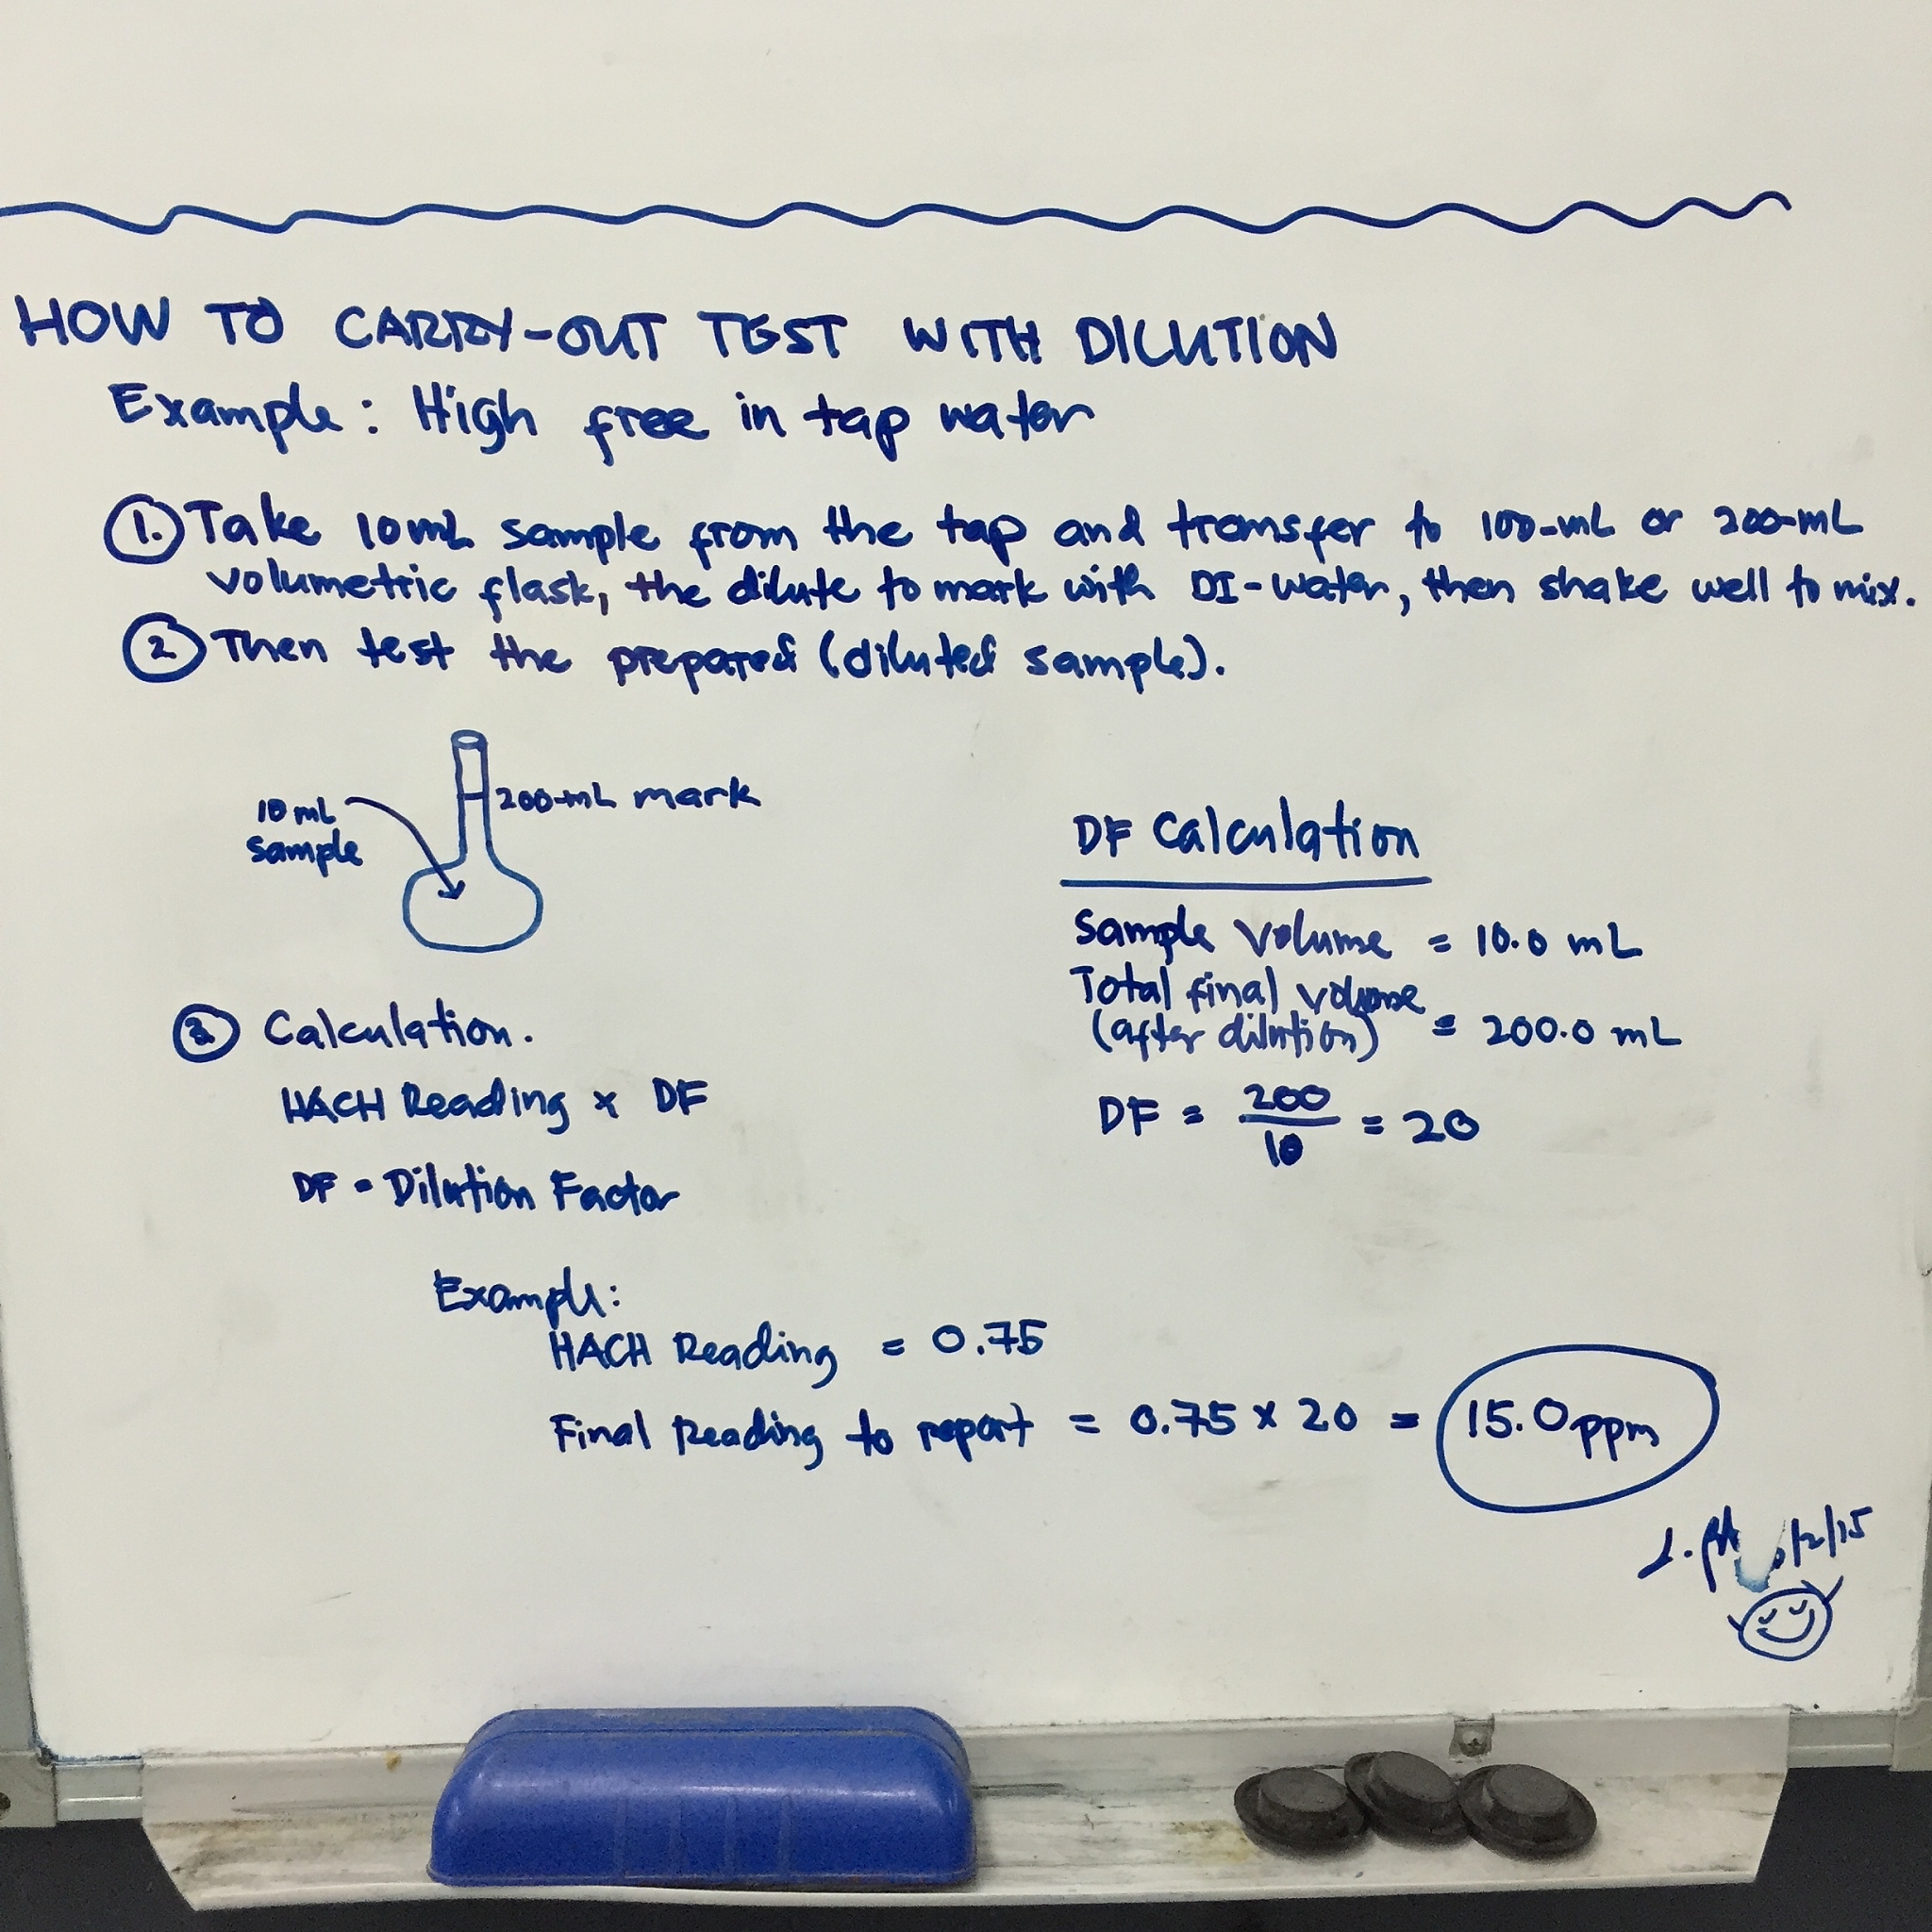 HOW TO CARRY-OUT TEST WITH DILUTION
Example: High free in tap water
1. Take 10mL sample from the tap and transfer to 100-mL or 200-mL
volumetric flask, the dilute to mark with DI-water, then shake well to mix.
2 Then test the prepared (diluted sample).
10 mL
sample
200-mL mark
3 Calculation.
HACH Reading x DF
DF = Dilution Factor
DF Calculation
Sample Volume = 10.0 mL
Total final volume
(after dilution) = 200.0 mL
DF = 200/10 = 20
Example:
HACH Reading = 0.75
Final Reading to report = 0.75 x 20 = 15.0 ppm
/2/15